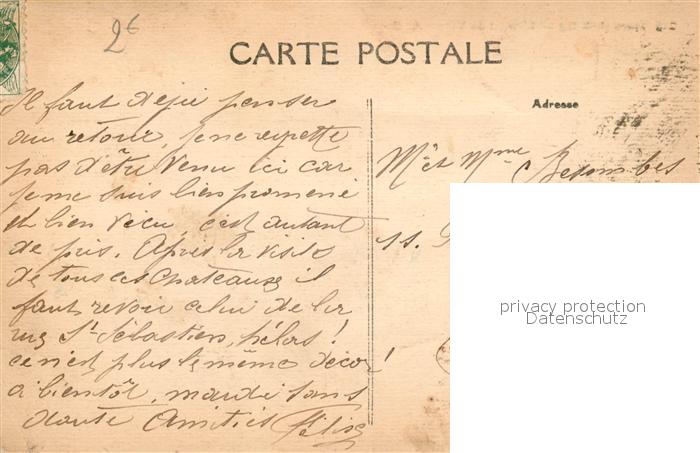 2€
CARTE POSTALE
Il faut déjà penser
au retour, je ne regrette
pas d'être venu ici car
je me suis bien promené
et bien vécu, c'est autant
de pris. Après la visite
de tous ces chateaux il
faut revoir celui de la
rue St Sébastien, hélas!
ce n'est plus le même décor!
à bientôt, mardi sans
doute Amitiés
Adresse
Mr et Mme Besombes
11.
privacy protection
Datenschutz